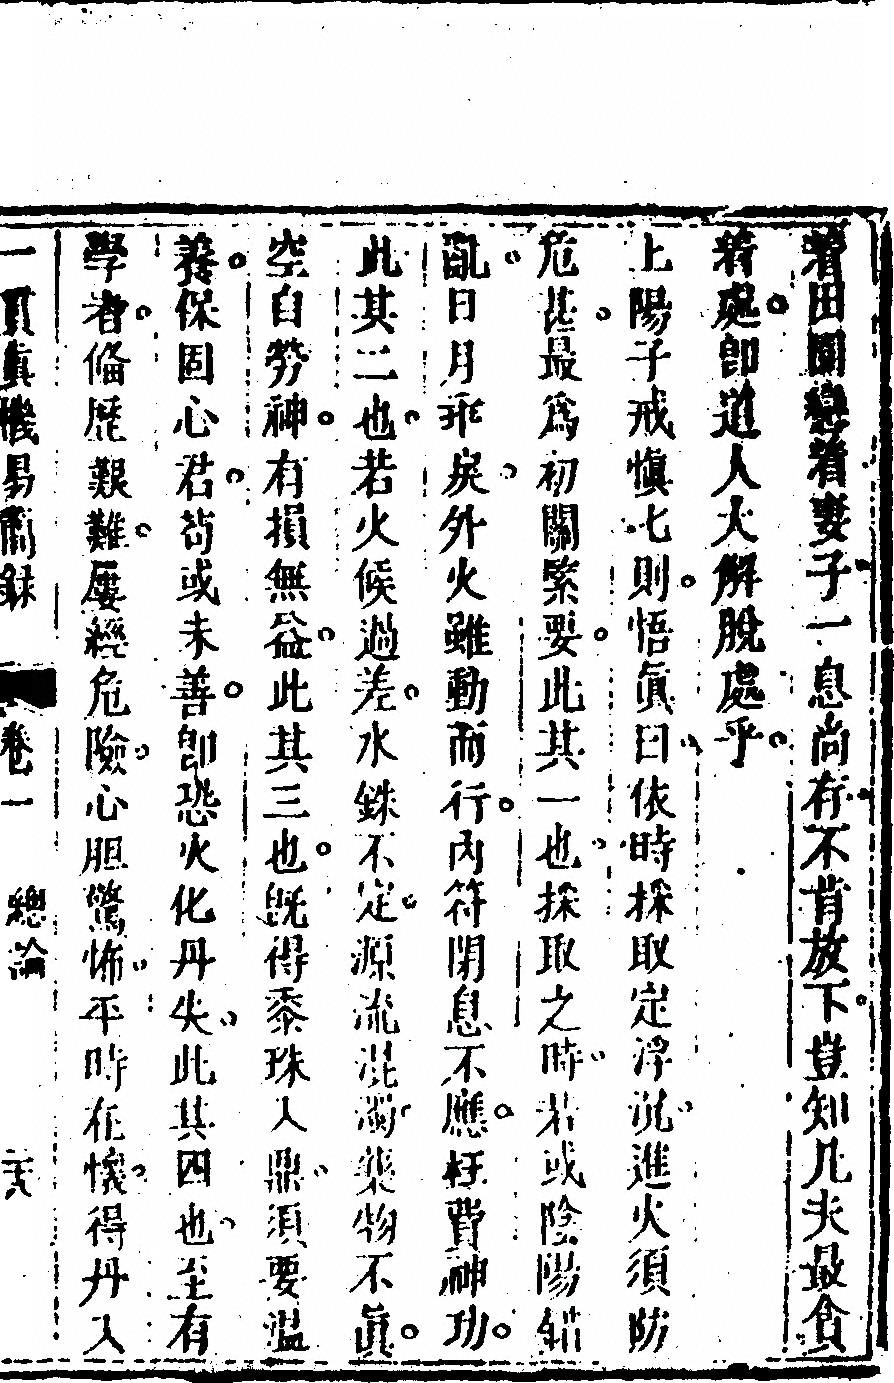 着田園戀着妻子一息尚存不肯放下豈知凡夫最貪
着處卽道人大解脫處乎
上陽子戒愼七則悟眞曰依時採取定浮沉進火須防
危甚最爲初關緊要此其一也採取之時若或陰陽錯
亂日月乖戾外火雖動而行內符閉息不應枉費神功
此其二也若火候過差水銖不定源流混濁藥物不眞
空自勞神有損無益此其三也旣得黍珠入鼎須要溫
養保固心君苟或未善卽恐火化丹失此其四也至有
學者俻歷艱難屢經危險心胆驚怖平時在懷得丹入
一貫眞機易簡錄 卷一 總論 二十八